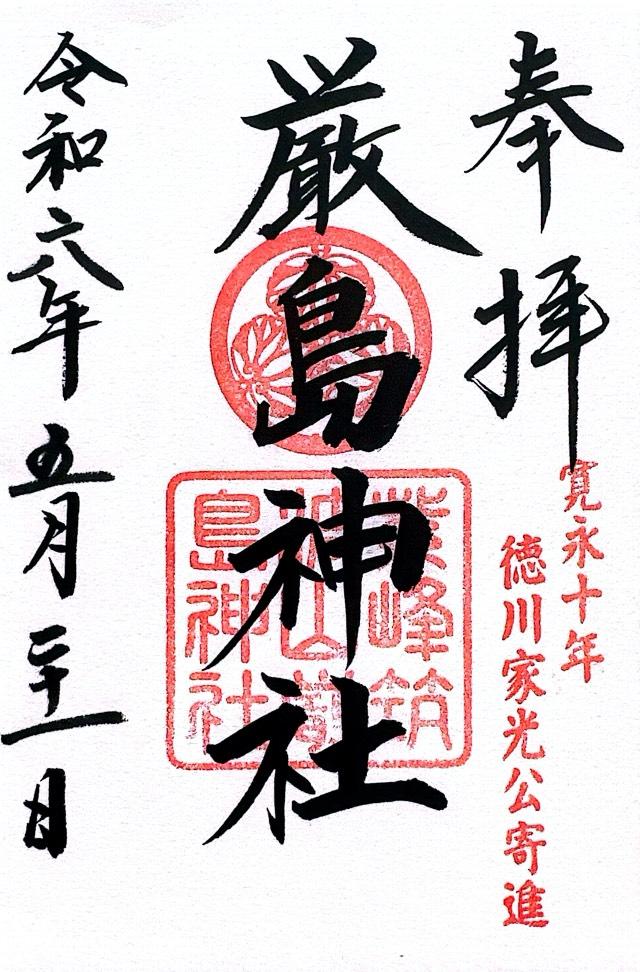 奉拝
寛永十年
徳川家光公寄進
厳島神社
紫峰筑
波山厳
島神社
令和六年五月二十一日